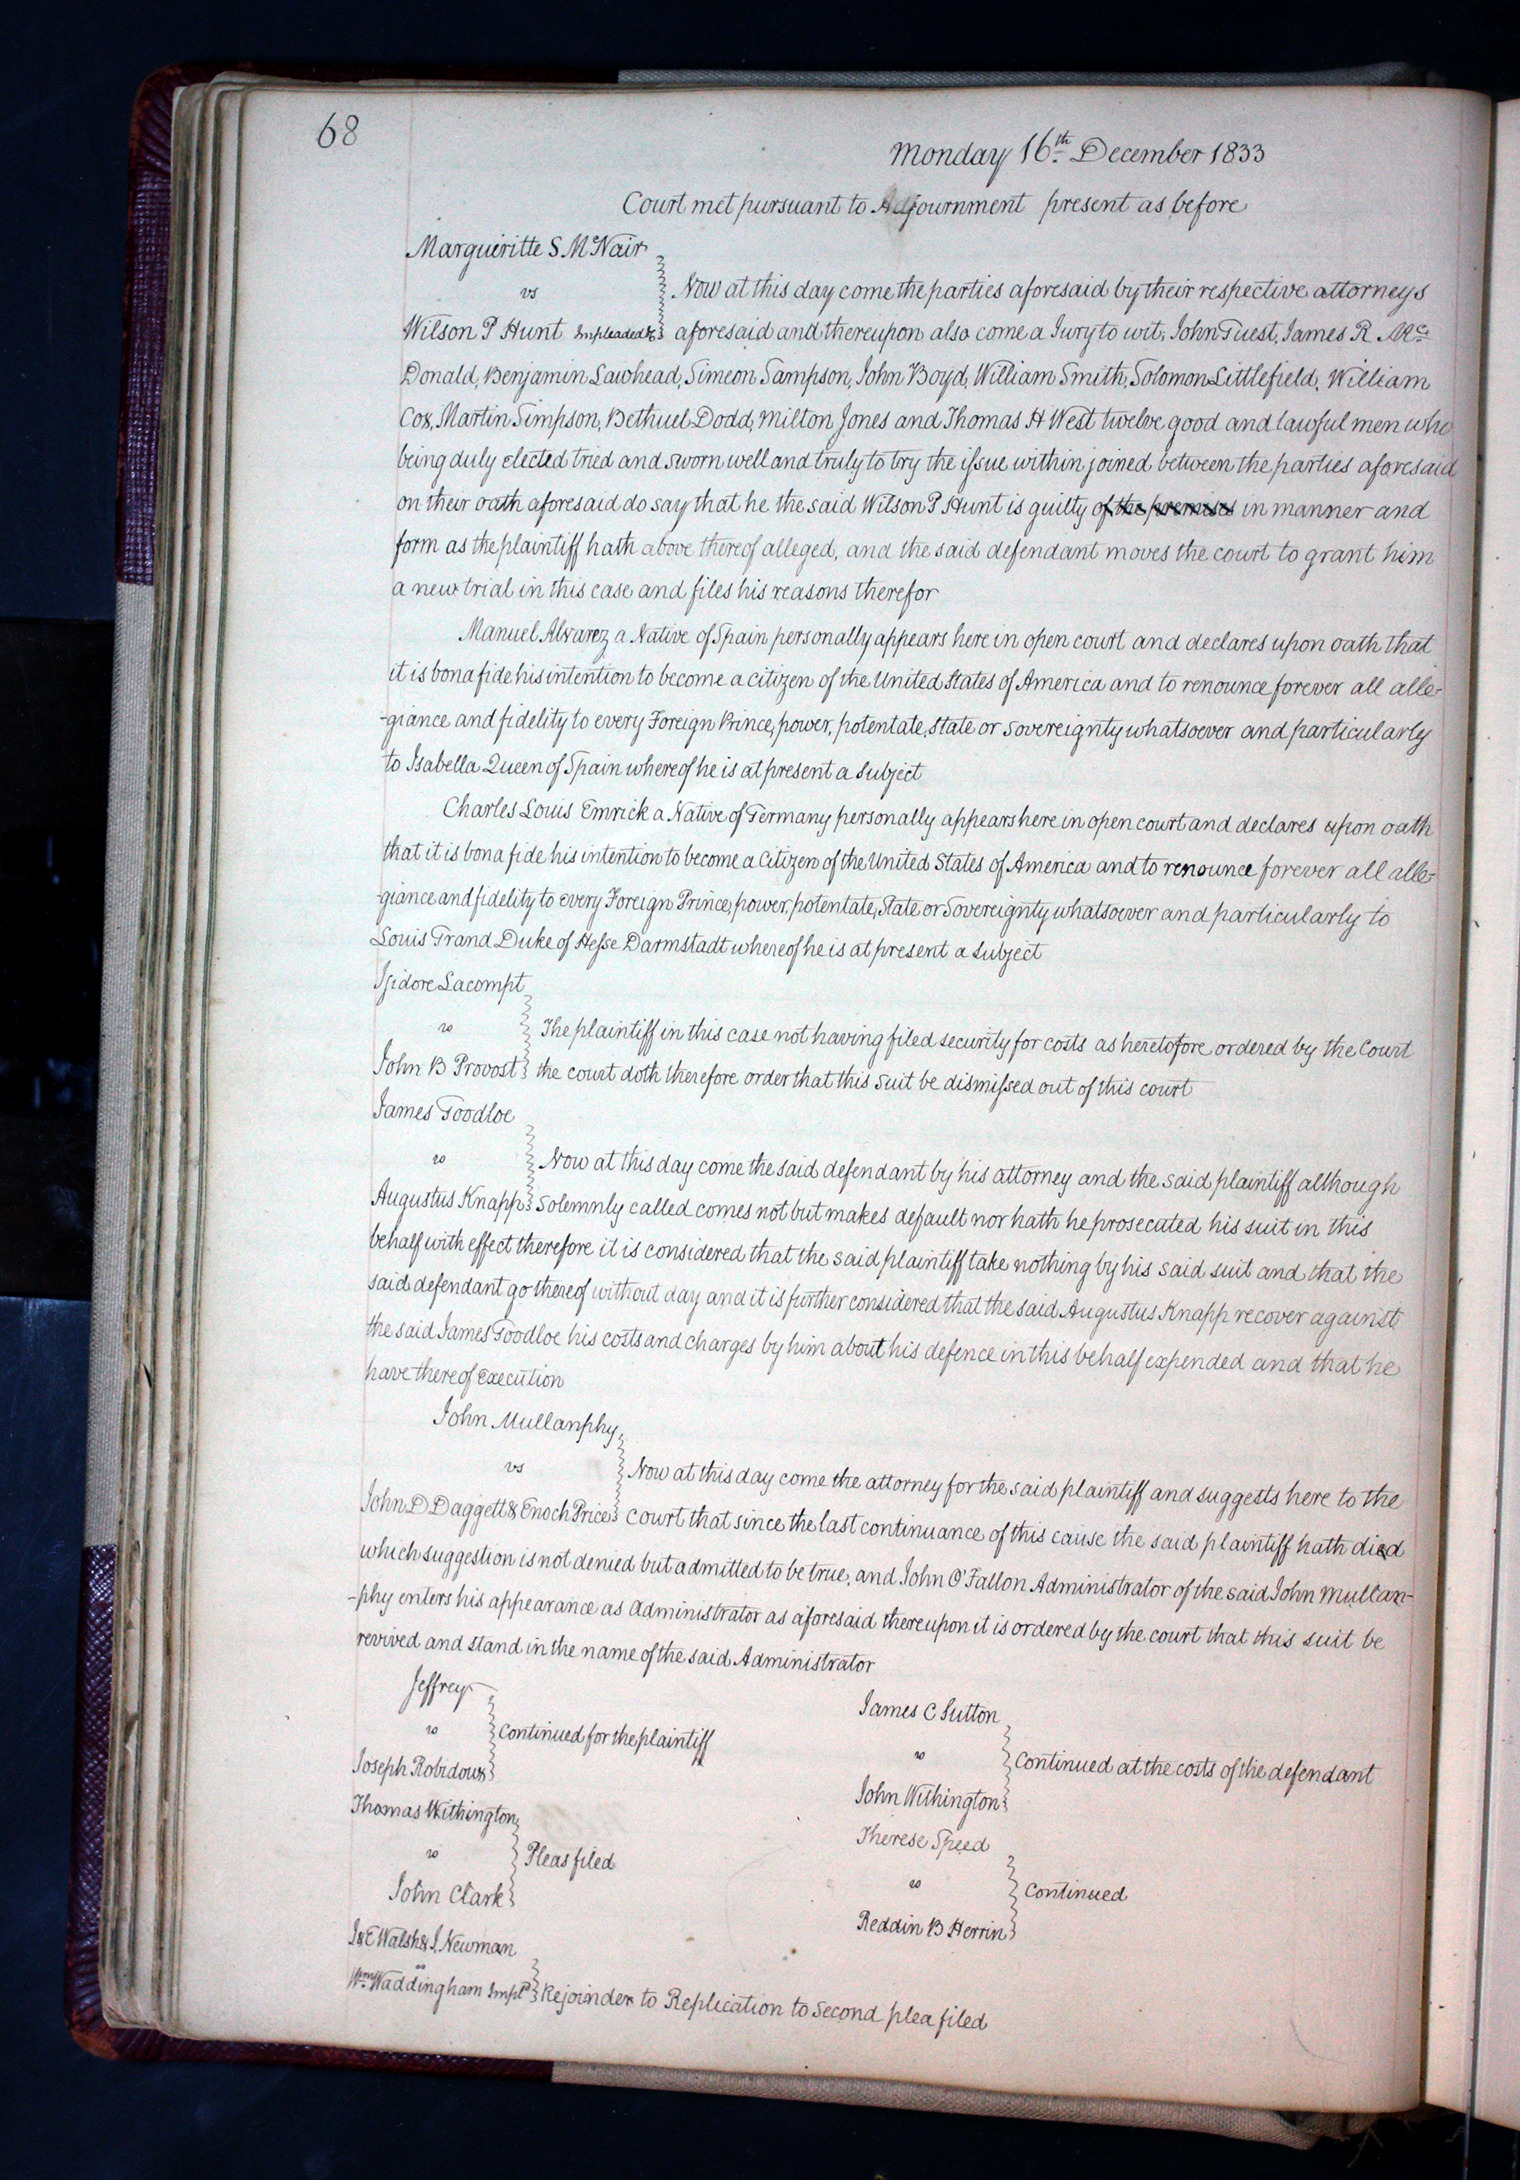 68
Monday 16th December 1833
Court met pursuant to Adjournment present as before
Margueritte S. McNair
vs
Now at this day come the parties aforesaid by their respective attorneys
Wilson P Hunt Impleaded &c aforesaid and thereupon also come a Jury to wit, John Guest, James R. Mc
Donald, Benjamin Lawhead, Simeon Sampson, John Boyd, William Smith, Solomon Littlefield, William
Cox, Martin Simpson, Bethuel Dodd, Milton Jones and Thomas H West twelve good and lawful men who
being duly elected tried and sworn well and truly to try the issue within joined between the parties aforesaid
on their oath aforesaid do say that he the said Wilson P Hunt is guilty of the premises in manner and
form as the plaintiff hath above thereof alleged, and the said defendant moves the court to grant him
a new trial in this case and files his reasons therefor
Manuel Alvarez a Native of Spain personally appears here in open court and declares upon oath that
it is bona fide his intention to become a citizen of the United States of America and to renounce forever all alle-
-giance and fidelity to every Foreign Prince, power, potentate, State or Sovereignty whatsoever and particularly
to Isabella Queen of Spain whereof he is at present a subject
Charles Louis Emrick a Native of Germany personally appears here in open court and declares upon oath
that it is bona fide his intention to become a Citizen of the United States of America and to renounce forever all alle-
-giance and fidelity to every Foreign Prince, power, potentate, State or Sovereignty whatsoever and particularly to
Louis Grand Duke of Hesse Darmstadt whereof he is at present a subject
Isidore Lacompt
vs
The plaintiff in this case not having filed security for costs as heretofore ordered by the Court
John B Provost the court doth therefore order that this suit be dismissed out of this court
James Goodloe
vs
Now at this day come the said defendant by his attorney and the said plaintiff although
Augustus Knapp Solemnly called comes not but makes default nor hath he prosecuted his suit in this
behalf with effect therefore it is considered that the said plaintiff take nothing by his said suit and that the
said defendant go thereof without day and it is further considered that the said Augustus Knapp recover against
the said James Goodloe his costs and charges by him about his defence in this behalf expended and that he
have thereof execution
John Mullanphy
vs
Now at this day come the attorney for the said plaintiff and suggests here to the
John D Daggett & Enoch Price court that since the last continuance of this cause the said plaintiff hath died
which suggestion is not denied but admitted to be true, and John O'Fallon Administrator of the said John Mullan-
-phy enters his appearance as Administrator as aforesaid thereupon it is ordered by the court that this suit be
revived and stand in the name of the said Administrator
Jeffrey
vs
Continued for the plaintiff
Joseph Robidoux
James C Sutton
vs
Continued at the costs of the defendant
John Withington
Thomas Withington
vs
Pleas filed
John Clark
Therese Speed
vs
Continued
Reddin B Herrin
J & E Walsh & J. Newman
vs
Wm Waddingham Impld Rejoinder to Replication to Second plea filed